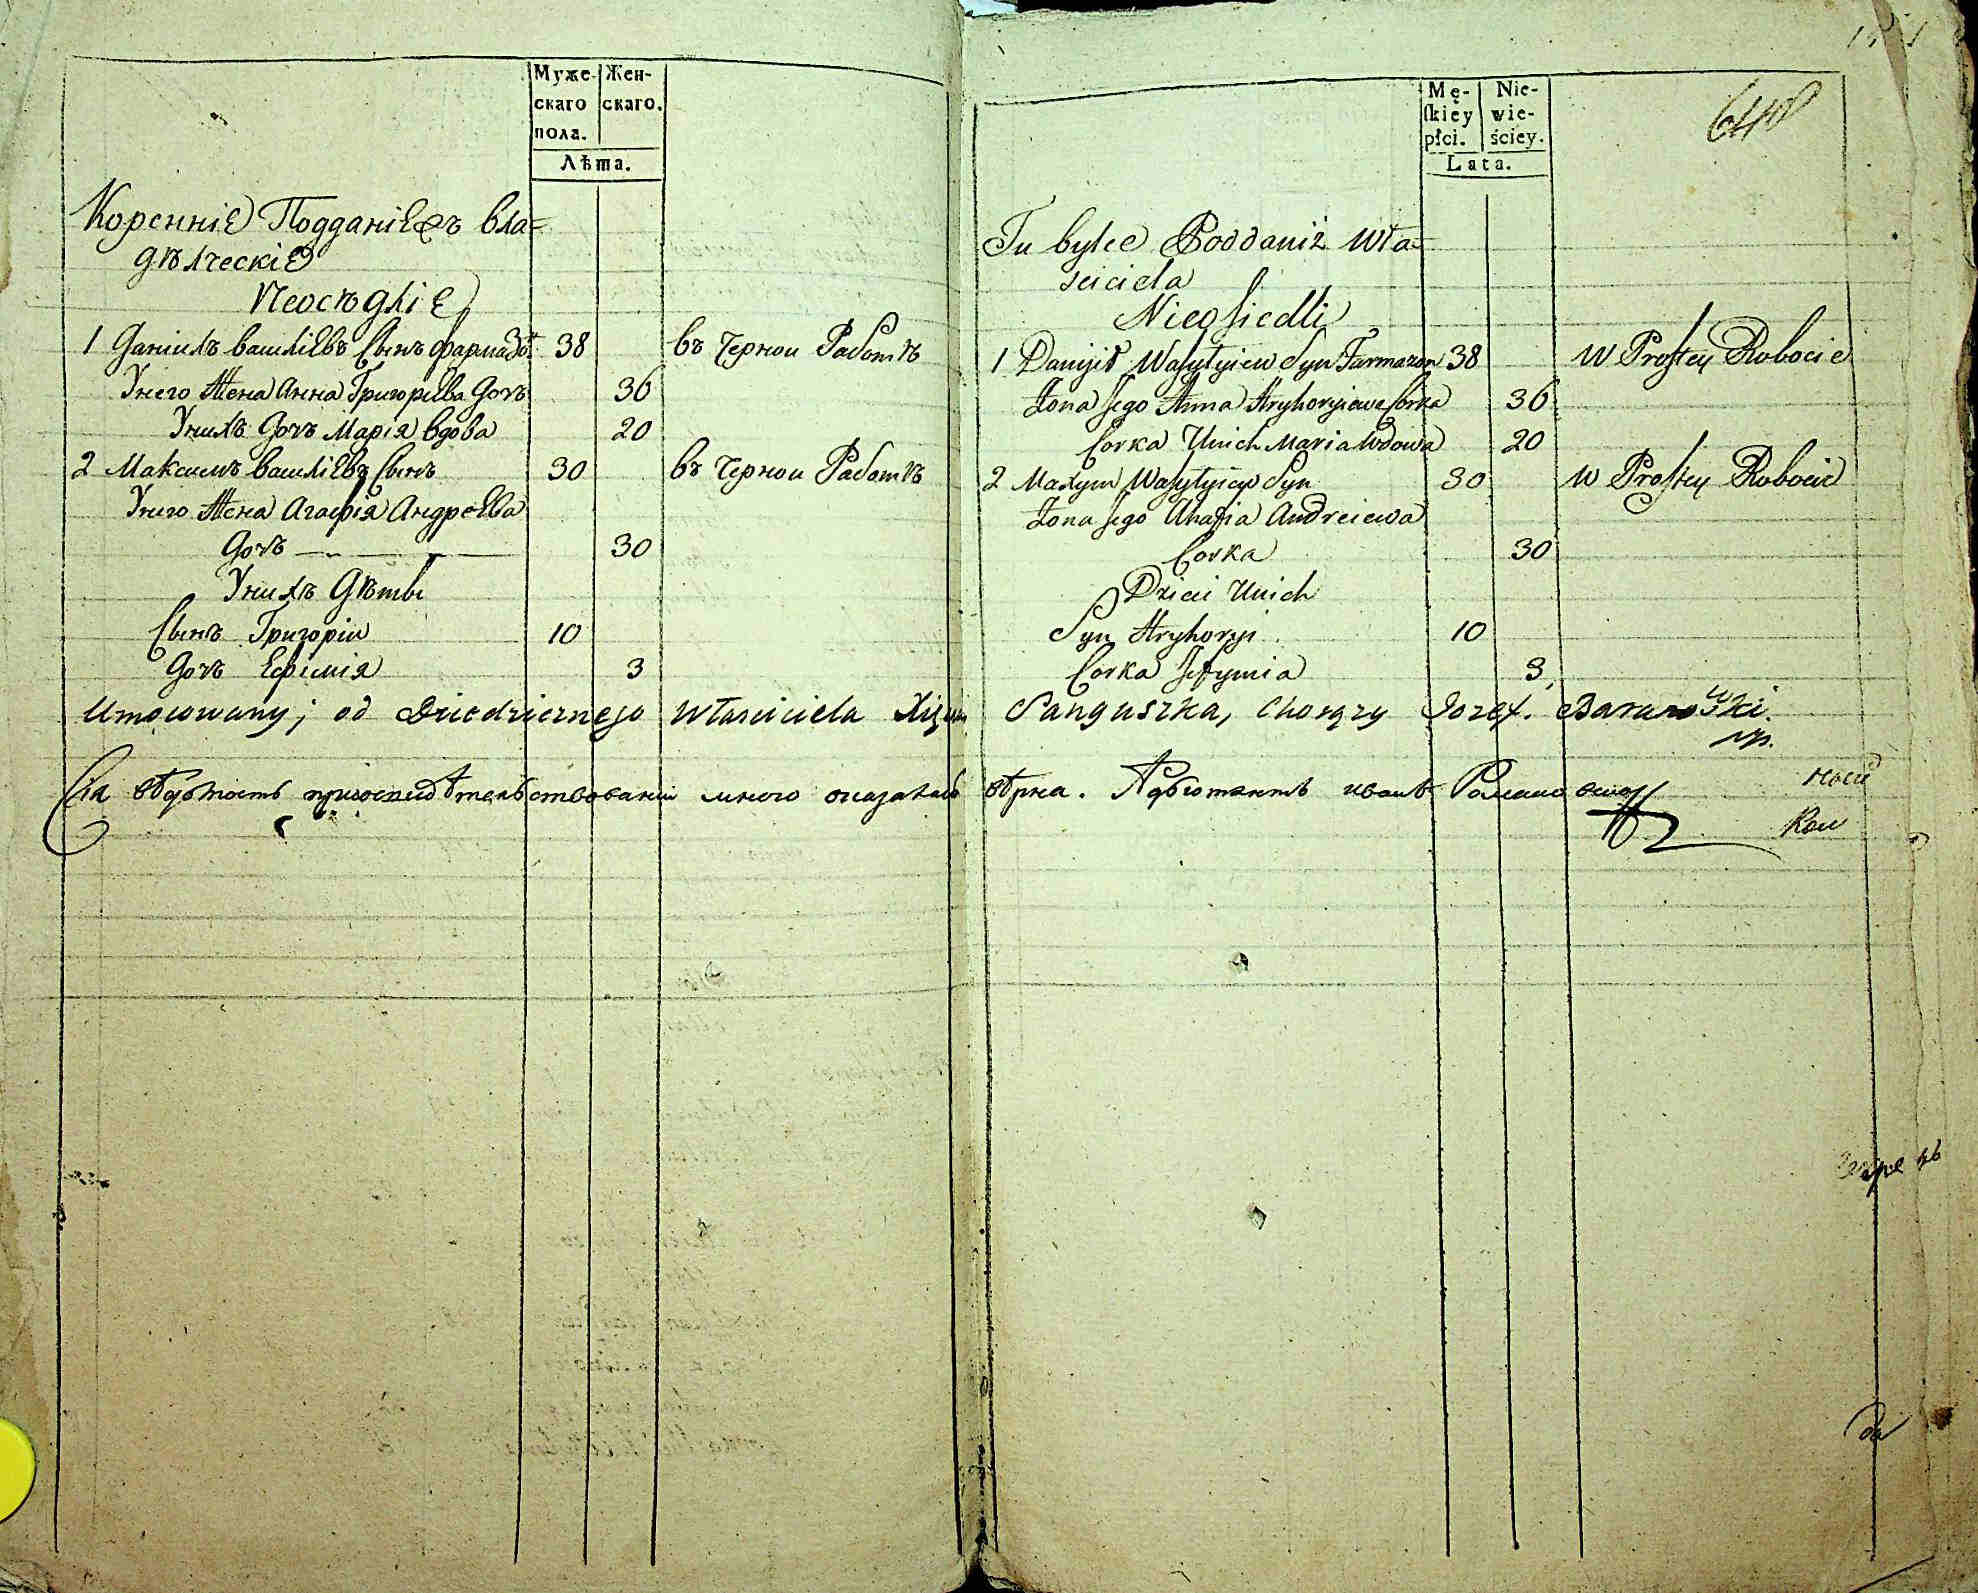 Муже- Жен-
скаго скаго.
пола.
Лѣта.
Коренніе Подданіе ихъ вла=
дѣлческіе
Неосѣдліе
1 Даніилъ Василіевъ Сынъ Фармазо 38 въ Черной Работѣ
У него Жена Анна Григоріева Дочь 36
У нихъ Дочь Марія Вдова 20
2 Максимъ Василіевъ Сынъ 30 въ Черной Работѣ
У него Жена Агафія Андреева
Дочь 30
У нихъ Дѣты
Сынъ Григорій 10
Дочь Ефімія 3
Mę- Nie-
ſkiey wie-
płci. ściey.
Lata.
Tu bylce Poddaniż Wła=
sciciela
Nieosiedli
1 Daniył Wasylyiew Syn Farmazon 38 w Prostey Robocie
Żona Jego Anna Hryhoryiewa Corka 36
Corka Unich Maria Wdowa 20
2 Maxym Wasylyiew Syn 30 w Prostey Robocie
Żona Jego Ahafia Andreiewa
Corka 30
Dzieci Unich
Syn Hryhoryi 10
Corka Jefymia 3
Umocowany; od Dziedzicznego Własciciela Xięcia Sanguszka, Chorąży Jozef.
мр.
Сія вѣдомость при освидѣтельствованіи мною оказалась вѣрна. Адъютантъ иванъ